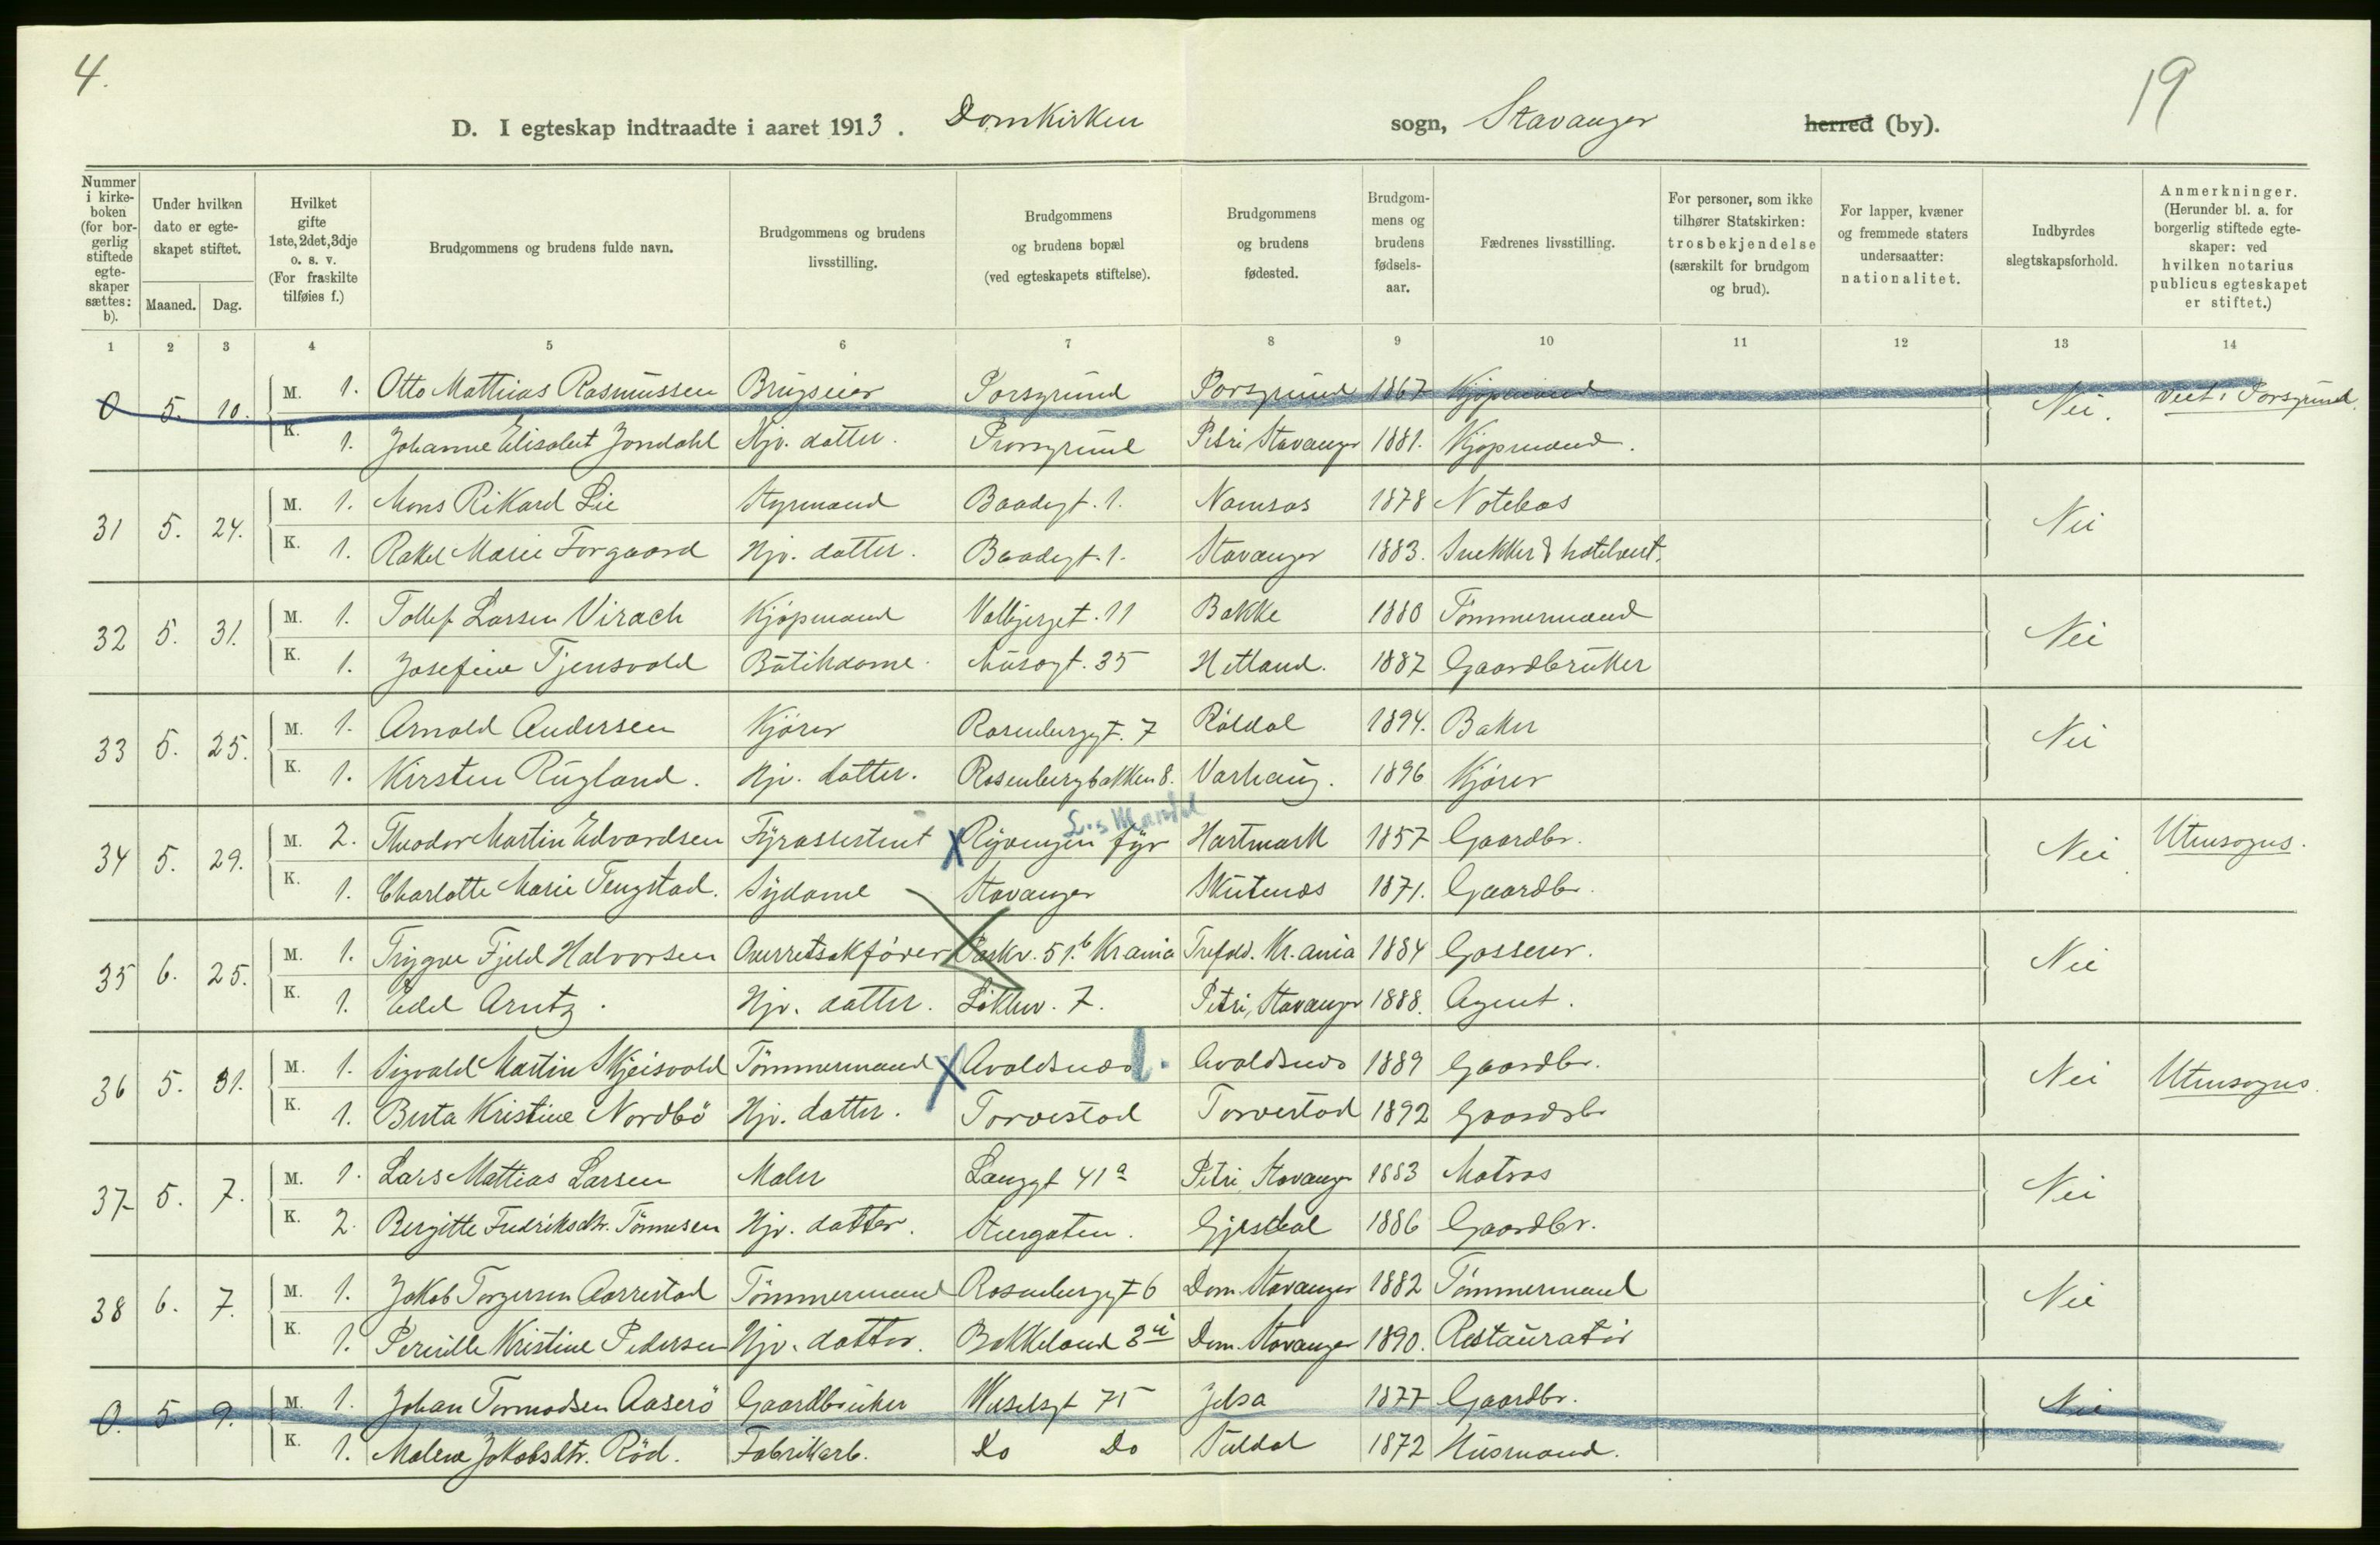 4.
19
D. I egteskap indtraadte i aaret 1913. Domkirken sogn, Stavanger herred (by).
Nummer i kirke-boken (for bor-gerlig stiftede egte-skaper sættes: b).
Under hvilken dato er egte-skapet stiftet.
Maaned. Dag.
Hvilket gifte 1ste, 2det, 3dje o. s. v. (For fraskilte tilføies f.)
Brudgommens og brudens fulde navn.
Brudgommens og brudens livsstilling.
Brudgommens og brudens bopæl (ved egteskapets stiftelse).
Brudgommens og brudens fødested.
Brudgom-mens og brudens fødsels-aar.
Fædrenes livsstilling.
For personer, som ikke tilhører Statskirken: trosbekjendelse (særskilt for brudgom og brud).
For lapper, kvæner og fremmede staters undersaatter: nationalitet.
Indbyrdes slegtskapsforhold.
Anmerkninger. (Herunder bl. a. for borgerlig stiftede egte-skaper: ved hvilken notarius publicus egteskapet er stiftet.)
1 2 3 4 5 6 7 8 9 10 11 12 13 14
0 5. 10. M. 1. Otto Mathias Rasmussen Brugseier Porsgrund Porsgrund 1867 Kjøpmand Nei. Viet i Porsgrund.
K. 1. Johanne Elisabet Jondahl Hjv. datter. Prorsgrund Petri Stavanger 1881. Kjøpmand.
31 5. 24. M. 1. Mons Rikard Lie Styrmand Baadegt. 1. Namsos 1878 Notebas Nei
K. 1. Rakel Marie Torgaard Hjv. datter. Baadegt. 1. Stavanger 1883. Snekker & hotelvert.
32 5. 31. M. 1. Tollef Larsen Virach Kjøpmand Valbjerget. 11 Bakke 1880 Tømmermand Nei
K. 1. Josefine Tjensvold Butikdame. Musegt. 35 Hetland. 1887 Gaardbruker
33 5. 25. M. 1. Arnold Andersen Kjører Rosenbergt. 7 Røldal 1894. Baker Nei
K. 1. Kirsten Rugland. Hjv. datter. Rosenbergbakken 8. Varhaug. 1896 Kjører
L. s Mandal
34 5. 29. M. 2. Theodor Martin Edvardsen Fyrassistent Ryvingen fyr Hartmark 1857 Gaardbr. Nei Utensogns.
K. 1. Charlotte Marie Tengstad. Sydame Stavanger Skutenæs 1871. Gaardbr.
35 6. 25. M. 1. Trygve Fjeld Halvorsen Overretsakfører Parkv. 51.b Krania Trefold. Kr.ania 1884 Grosserer. Nei
K. 1. Edel Arntz. Hjv. datter. Løkkev. 7. Petri, Stavanger 1888. Agent.
36 5. 31. M. 1. Sigvald Martin Skjeisvold Tømmermand Avaldsnæs l. Avaldsnæs 1889 Gaardbr. Nei Utensogns.
K. 1. Berta Kristine Nordbø Hjv. datter. Torvestad Torvestad 1892 Gaardbr
37 5. 7. M. 1. Lars Mattias Larsen Maler Langgt 41a Petri Stavanger 1883 Matros Nei
K. 2. Bergitte Fredriksdtr. Tønnesen Hjv. datter. Steugaten. Gjesdal 1886 Gaardbr.
38 6. 7. M. 1. Jakob Torgersen Aarrestad Tømmermand Rosenbergt 6 Dom. Stavanger 1882 Tømmermand Nei
K. 1. Pernille Kristine Pedersen Hjv. datter. Bakkeland 3 Dom. Stavanger 1890. Restauratør
0. 5 9. M. 1. Johan Tormodsen Aaserø Gaardbruker Weselsgt 75 Jelsa 1877 Gaardbr. Nei
K. 1. Malene Jakobsdtr. Rød. Fabrikarb. Do Do Suldal 1872 Husmand.